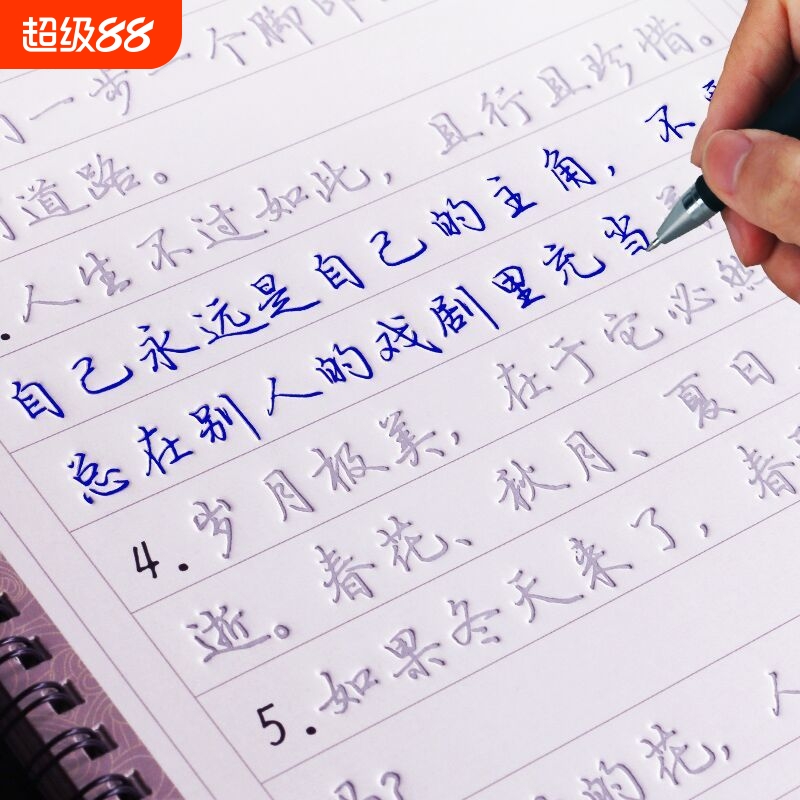 超级88
一步一个脚印
道路。
人生不过如此，且行且珍惜。
自己永远是自己的主角，不
总在别人的戏剧里充当
4.岁月极美，在于它必然
逝。春花、秋月、夏日
5.如果冬天来了，春
的花，人